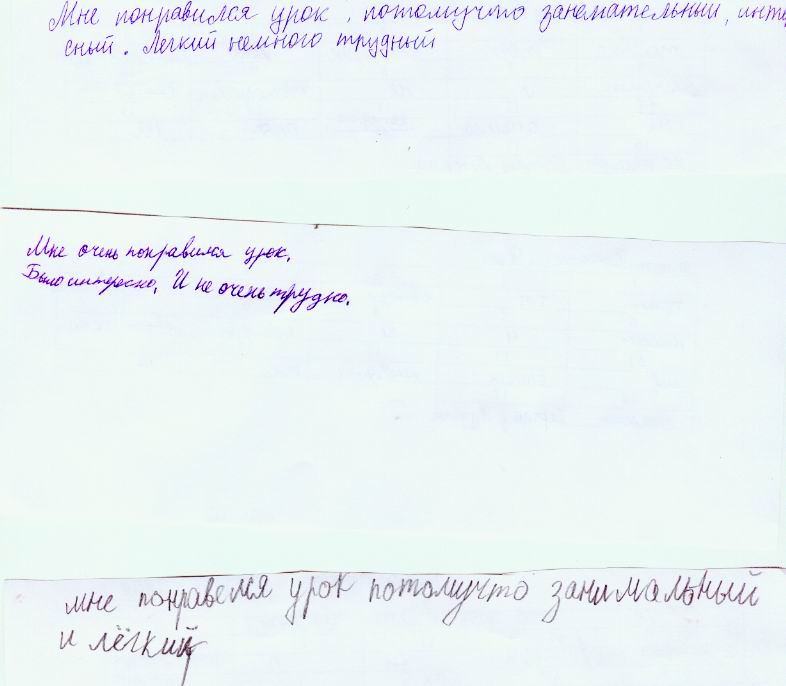 Мне понравился урок, потомучто занемательный, инте
сный. Легкий немного трудный
Мне очень понравился урок.
Было интересно. И не очень трудно.
мне понравелся урок потомучто занимальный
и лёгкий